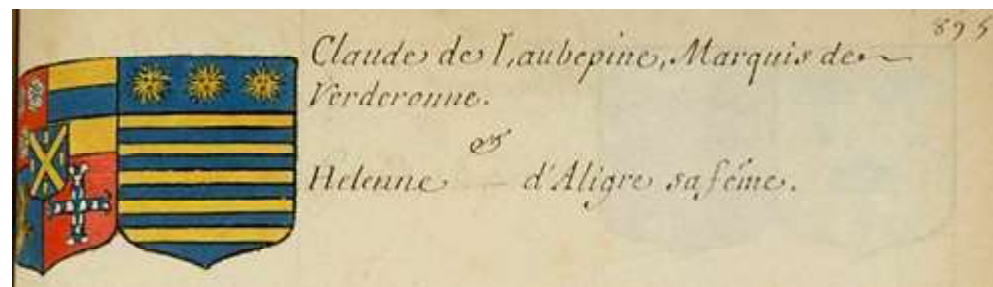 895
Claude de L'aubepine, Marquis de
Verderonne.
&
Helenne d'Aligre sa fême.